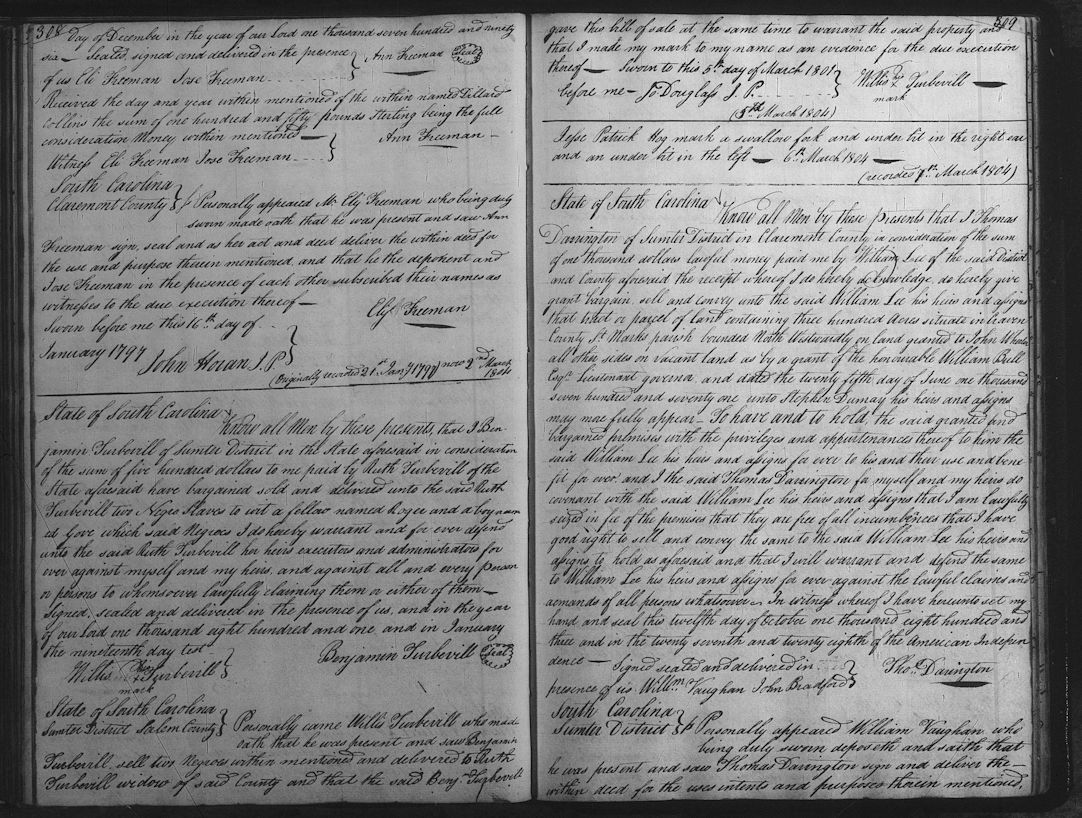 308
day of December in the year of our Lord one thousand seven hundred and ninety
six — Sealed, signed and delivered in the presence } Ann Freeman Seal
of us Eli Freeman Jose Freeman
Received the day and year within mentioned of the within named Dillard
Collins the sum of one hundred and fifty pounds Sterling being the full
consideration Money within mentioned — Ann Freeman —
Witness Eli Freeman Jose Freeman }
South Carolina
Claremont County } Pasonally appeared Mr Ely Freeman who being duly
sworn made oath that he was present and saw Ann
Freeman sign, seal and as her act and deed deliver the within deed for
the use and purpose therein mentioned, and that he the deponent and
Jose Freeman in the presence of each other subscribed their names as
witnesses to the due execution thereof —
Ely Freeman
Sworn before me this 16th day of
January 1797 }
John Horan J.P.
(Originally recorded 21st Jany 1797) now 2nd March
1804
State of South Carolina
Know all Men by these presents, that I Ben-
jamin Turbevill of Sumter District in the State aforesaid in consideration
of the sum of five hundred dollars to me paid by Ruth Turbevill of the
State aforesaid have bargained sold and delivered unto the said Ruth
Turbevill two Negro Slaves to wit a fellow named Roger and a boy nam
ed Gove which said Negroes I do hereby warrant and for ever defend
unto the said Ruth Turbevill her heirs executors and administrators for
ever against myself and my heirs, and against all and every person
or persons to whomsoever lawfully claiming them or either of them —
Signed, sealed and delivered in the presence of us, and in the year
of our Lord one thousand eight hundred and one and in January
the nineteenth day test
Benjamin Turbevill Seal
Willis his x Turbevill }
mark
State of South Carolina
Sumter District Salem County } Personally came Willis Turbevill who made
oath that he was present and saw Benjamin
Turbevill, sell two Negroes within mentioned and delivered to Ruth
Turbevill widow of said County and that the said Benjn Turbevill
309
gave this bill of sale at the same time to warrant the said property and
that I made my mark to my name as an evidence for the due execution
thereof — Sworn to this 5th day of March 1801 }
before me — Jo Douglass J. P. Willis his x Turbevill
mark
(5th March 1804)
Jesse Patrick Hog mark a swallow fork and under bit in the right ear
and an under bit in the left — 6th March 1804 —
(recorded 7th March 1804)
State of South Carolina
Know all Men by these presents that I Thomas
Darrington of Sumter District in Claremont County in consideration of the sum
of one thousand dollars lawful money paid me by William Lee of the said District
and County aforesaid the receipt whereof I do hereby acknowledge, do hereby give
grant bargain, sell and convey unto the said William Lee his heirs and assigns
that tract or parcel of land containing three hundred Acres situate in Craven
County St Marks parish bounded North Westwardly on land granted to John
all other sides on vacant land as by a grant of the honourable William Bull
Esqr Lieutenant governor, and dated the twenty fifth day of June one thousand
seven hundred and seventy one unto Stephen Dumay his heirs and assigns
may more fully appear — To have and to hold, the said granted and
bargained premises with the privileges and appurtenances thereof to him the
said William Lee his heirs and assigns for ever to his and their use and bene-
fit for ever and I the said Thomas Darrington for myself and my heirs do
covenant with the said William Lee his heirs and assigns that I am lawfully
seized in fee of the premises that they are free of all incumbrances that I have
good right to sell and convey the same to the said William Lee his heirs and
assigns to hold as aforesaid and that I will warrant and defend the same
to William Lee his heirs and assigns for ever against the lawful claims and
demands of all persons whatsoever — In witness whereof I have hereunto set my
hand and seal this twelfth day of October one thousand eight hundred and
three and in the twenty seventh and twenty eighth of the American Indepen-
dence —
Signed sealed and delivered in } Thos Darington
presence of us Willm Vaughan John Bradford
South Carolina
Sumter District } Personally appeared William Vaughan who
being duly sworn deposeth and saith that
he was present and saw Thomas Darington sign and deliver the —
within deed for the uses intents and purposes therein mentioned,